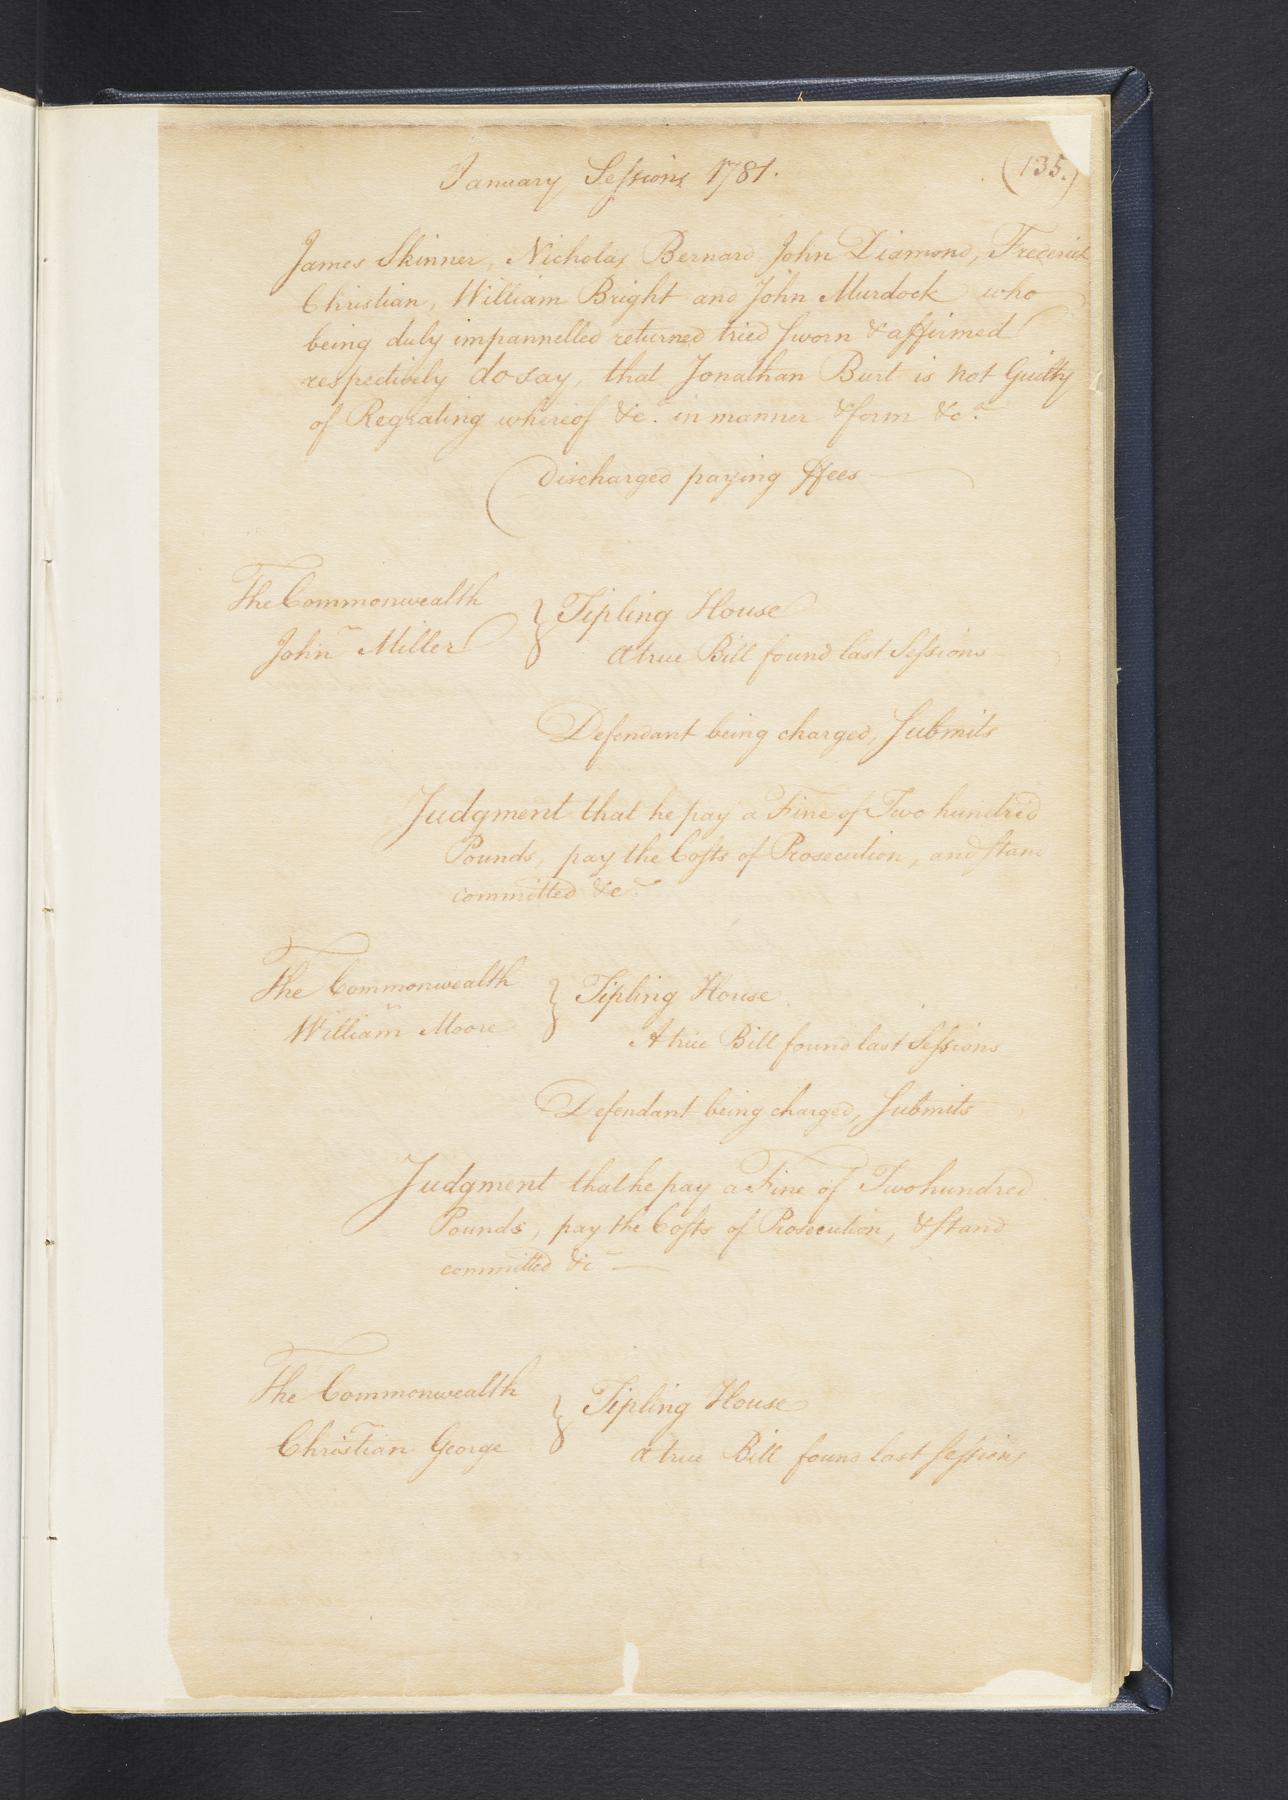 January Sessions 1781.
(135.)
James Skinner, Nicholas Bernard John Diamond, Frederick
Christian, William Bright and John Murdock who
being duly impannelled returned tried sworn & affirmed
respectively do say, that Jonathan Burt is not Guilty
of Regrating whereof &c. in manner & form &c.
Discharged paying ffees
The Commonwealth
John Miller
} Tipling House
A true Bill found last Sessions
Defendant being charged, Submits
Judgment that he pay a Fine of Two hundred
Pounds, pay the Costs of Prosecution, and stand
committed &c.
The Commonwealth
William Moore
} Tipling House
A true Bill found last Sessions
Defendant being charged, Submits
Judgment that he pay a Fine of Two hundred
Pounds, pay the Costs of Prosecution, & stand
committed &c
The Commonwealth
Christian George
} Tipling House
A true Bill found last Sessions